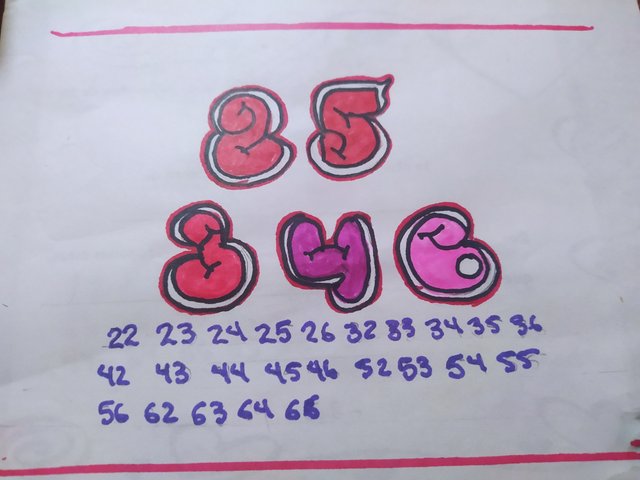 2 5
3 4 6
22 23 24 25 26 32 33 34 35 36
42 43 44 45 46 52 53 54 55
56 62 63 64